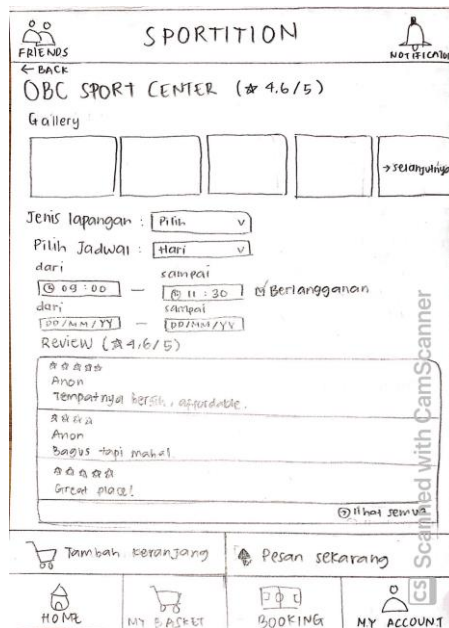 SPORTITION
FRIENDS
NOTIFICATION
← BACK
OBC SPORT CENTER (☆ 4.6/5)
Gallery
→ selanjutnya
Jenis lapangan : Pilih v
Pilih Jadwal : Hari v
dari sampai
09:00 — 11:30 ☑ Berlangganan
dari sampai
DD/MM/YY — DD/MM/YY
Review (☆ 4.6/5)
☆☆☆☆☆
Anon
Tempatnya bersih, affordable.
☆☆☆☆
Anon
Bagus tapi mahal
☆☆☆☆☆
Great place!
lihat semua
Tambah keranjang
Pesan sekarang
HOME
MY BASKET
BOOKING
MY ACCOUNT
CS Scanned with CamScanner